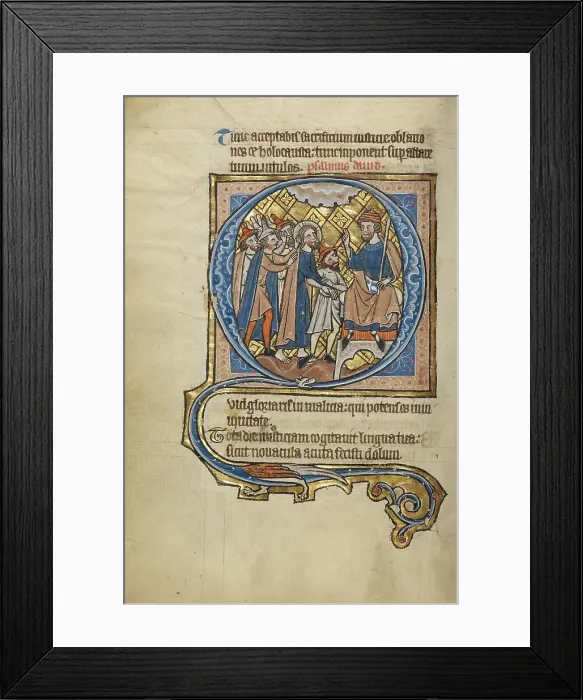 Tunc acceptabis sacrificium iusticie oblatio
nes et holocausta: tunc inponent sup altare
tuum uitulos. psalmus dauid.
Quid gloriaris in malicia: qui potens es in in
iquitate.
Tota die iniusticiam cogitauit lingua tua:
sicut nouacula acuta fecisti dolum